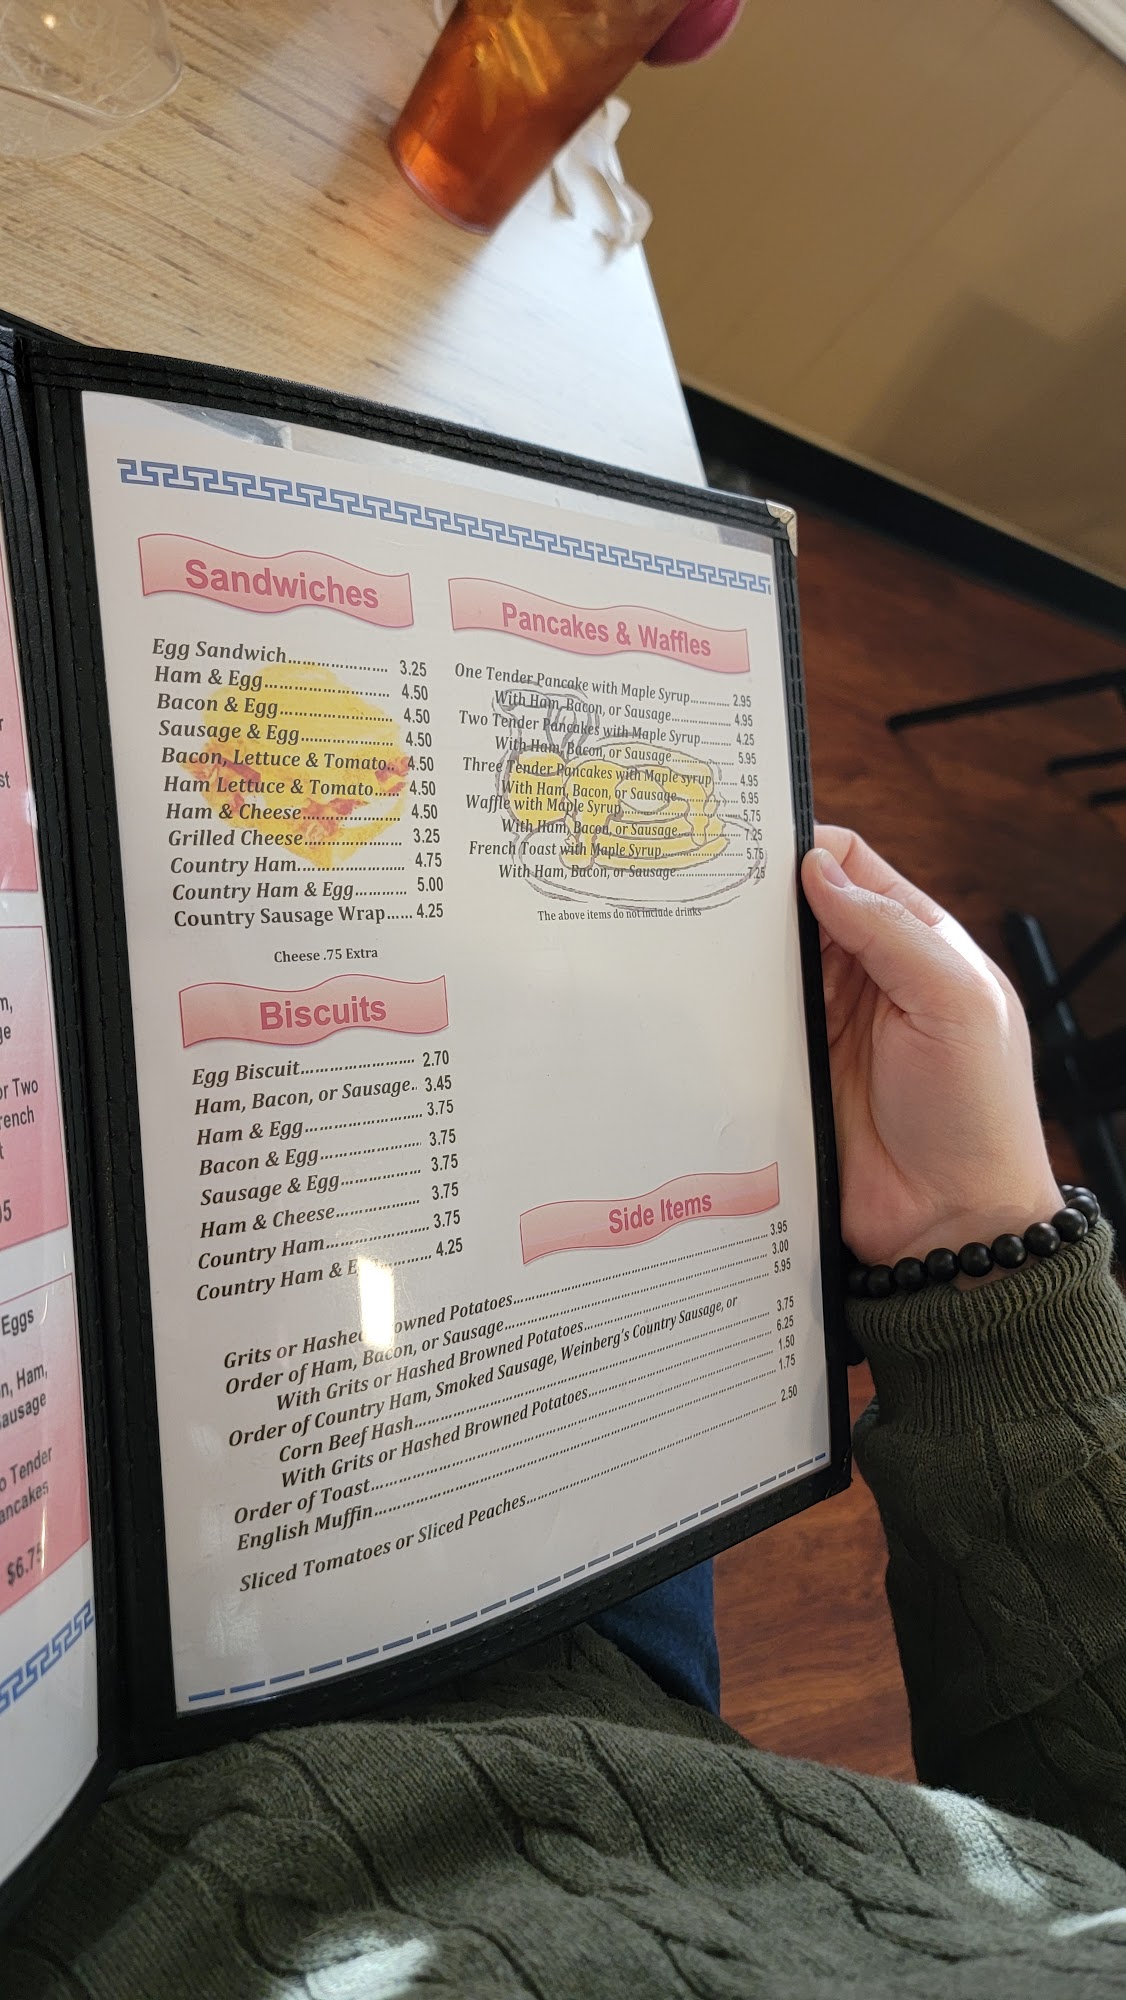 st
m,
ge
or Two
rench
t
Eggs
n, Ham,
ausage
o Tender
ancakes
$6.75
Sandwiches
Egg Sandwich..................... 3.25
Ham & Egg........................... 4.50
Bacon & Egg........................ 4.50
Sausage & Egg.................... 4.50
Bacon, Lettuce & Tomato.. 4.50
Ham Lettuce & Tomato...... 4.50
Ham & Cheese..................... 4.50
Grilled Cheese..................... 3.25
Country Ham....................... 4.75
Country Ham & Egg........... 5.00
Country Sausage Wrap...... 4.25
Cheese .75 Extra
Biscuits
Egg Biscuit......................... 2.70
Ham, Bacon, or Sausage.. 3.45
Ham & Egg......................... 3.75
Bacon & Egg...................... 3.75
Sausage & Egg.................. 3.75
Ham & Cheese................... 3.75
Country Ham..................... 3.75
Country Ham & E........... 4.25
Pancakes & Waffles
One Tender Pancake with Maple Syrup............ 2.95
With Ham, Bacon, or Sausage................ 4.95
Two Tender Pancakes with Maple Syrup.......... 4.25
With Ham, Bacon, or Sausage................ 5.95
Three Tender Pancakes with Maple syrup....... 4.95
With Ham, Bacon, or Sausage................ 6.95
Waffle with Maple Syrup................................ 5.75
With Ham, Bacon, or Sausage................ 7.25
French Toast with Maple Syrup...................... 5.75
With Ham, Bacon, or Sausage................ 7.25
The above items do not include drinks
Side Items
Grits or Hashed Browned Potatoes.................................................. 3.95
Order of Ham, Bacon, or Sausage.................................................. 3.00
With Grits or Hashed Browned Potatoes........................................ 5.95
Order of Country Ham, Smoked Sausage, Weinberg's Country Sausage, or
Corn Beef Hash.................................................................. 3.75
With Grits or Hashed Browned Potatoes........................................ 6.25
Order of Toast.................................................................. 1.50
English Muffin.................................................................. 1.75
Sliced Tomatoes or Sliced Peaches.................................................. 2.50